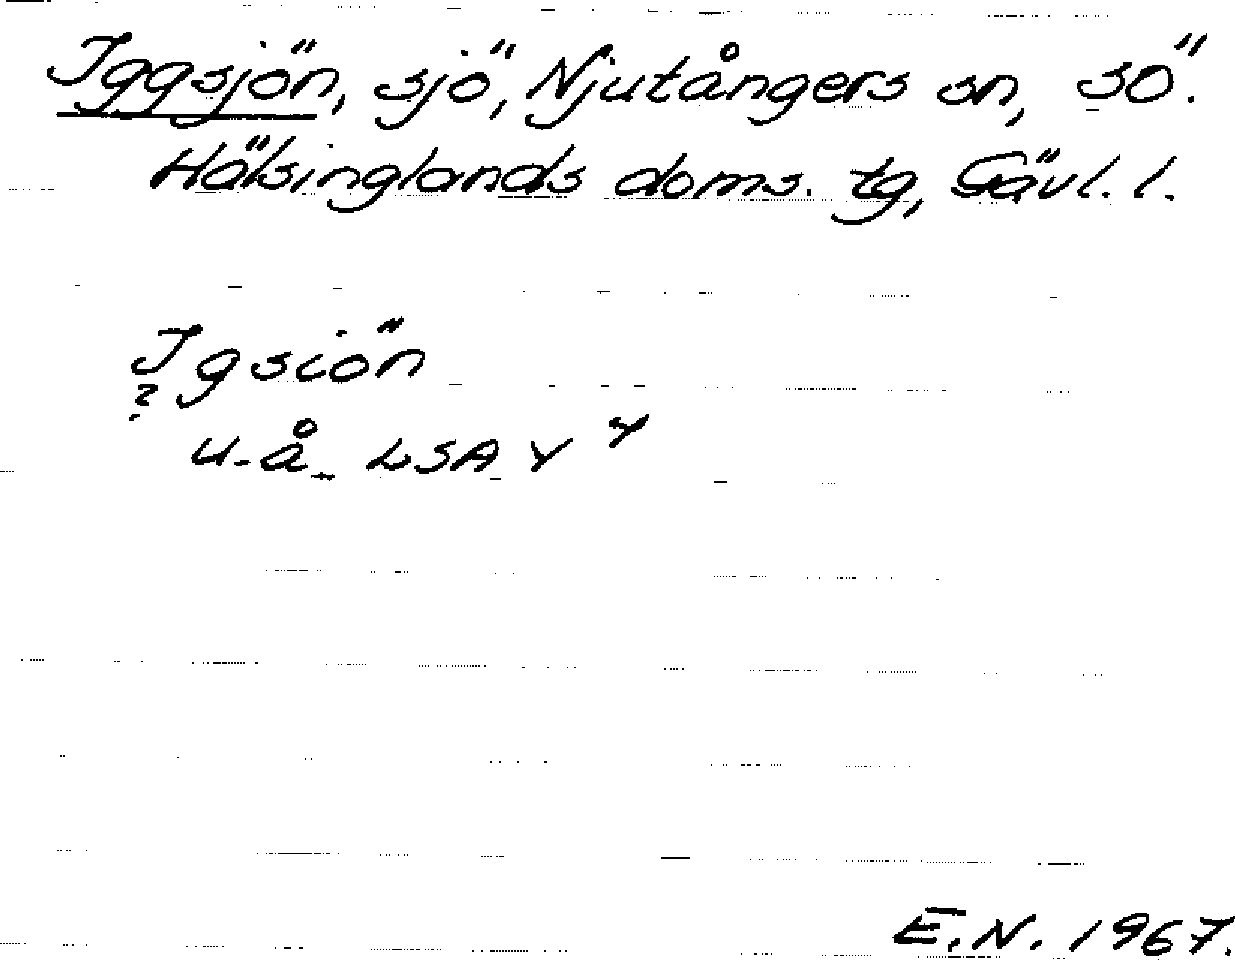 Iggsjön, sjö, Njutångers sn, sö.
Hälsinglands doms. tg, Gävl. l.
Igsiön
?
u. å. LSA Y 4
E.N. 1967.